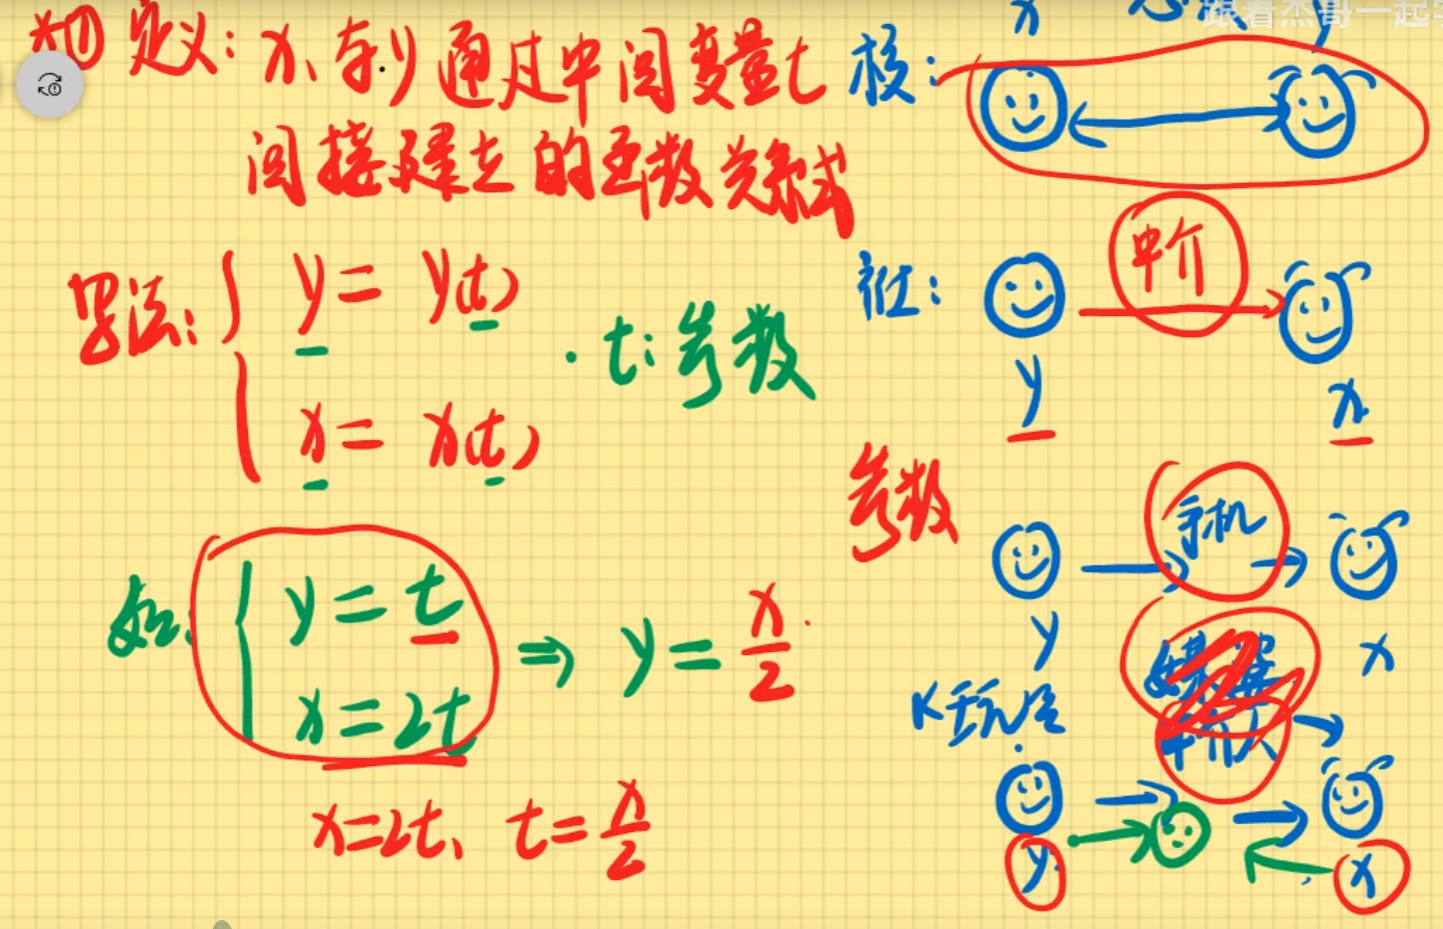 知① 定义: x、与y 通过中间变量t
间接建立的函数关系式
写法: { y = y(t)
x = x(t)
· t: 参数
如: { y = t
x = 2t
⇒ y = x/2
x=2t、 t = x/2
跟着杰哥一起学
x y
校:
社: 中介
y x
参数
手机
y x
K玩笑
中介人
y x